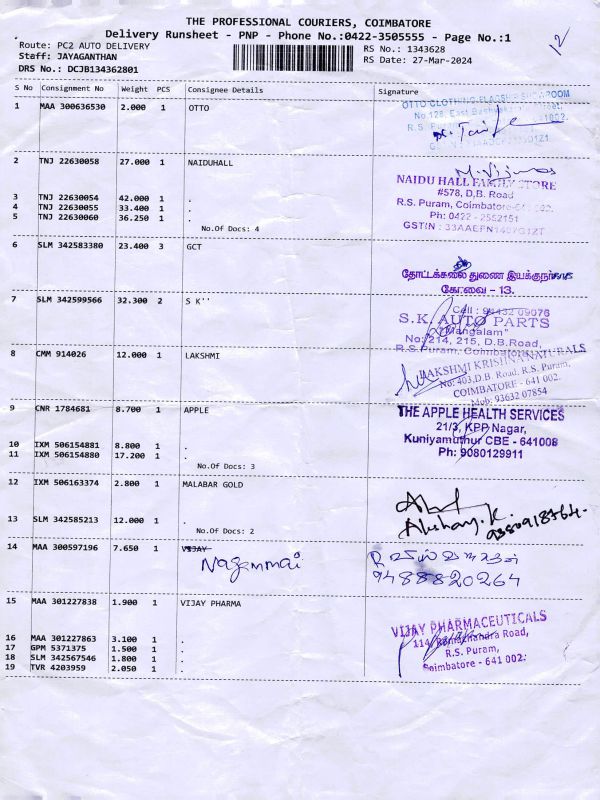 THE PROFESSIONAL COURIERS, COIMBATORE
Delivery Runsheet - PNP - Phone No.:0422-3505555 - Page No.:1
12
Route: PC2 AUTO DELIVERY
RS No.: 1343628
Staff: JAYAGANTHAN
RS Date: 27-Mar-2024
DRS No.: DCJB134362801
S No Consignment No Weight PCS Consignee Details Signature
1 MAA 300636530 2.000 1 OTTO
OTTO CLOTHING FLAGSHIP SHOWROOM
2 TNJ 22630058 27.000 1 NAIDUHALL
NAIDU HALL FAMILY STORE
#578, D.B. Road
R.S. Puram, Coimbatore
Ph: 0422 - 2552151
GSTIN : 33AAEFN1487G1ZT
3 TNJ 22630054 42.000 1 .
4 TNJ 22630055 33.400 1 .
5 TNJ 22630060 36.250 1 .
No.Of Docs: 4
6 SLM 342583380 23.400 3 GCT
தோட்டக்கலை துணை இயக்குநர்
கோவை - 13.
7 SLM 342599566 32.300 2 S K''
Cell : 98432 09076
S.K. AUTO PARTS
"Mangalam"
No:214, 215, D.B.Road,
R.S.Puram, Coimbatore
8 CMM 914026 12.000 1 LAKSHMI
LAKSHMI KRISHNA NATURALS
No: 403, D.B. Road, R.S. Puram,
COIMBATORE - 641 002.
Mob: 93632 07854
9 CNR 1784681 8.700 1 APPLE
THE APPLE HEALTH SERVICES
21/3, KPP Nagar,
Kuniyamuthur CBE - 641008
Ph: 9080129911
10 IXM 506154881 8.800 1 .
11 IXM 506154880 17.200 1 .
No.Of Docs: 3
12 IXM 506163374 2.800 1 MALABAR GOLD
Akshay.K.
9380918764
13 SLM 342585213 12.000 1 .
No.Of Docs: 2
14 MAA 300597196 7.650 1 VIJAY
Nagammai
9488820264
15 MAA 301227838 1.900 1 VIJAY PHARMA
VIJAY PHARMACEUTICALS
114, Ramachandra Road,
R.S. Puram,
Coimbatore - 641 002.
16 MAA 301227863 3.100 1 .
17 GPM 5371375 1.500 1 .
18 SLM 342567546 1.800 1 .
19 TVR 4203959 2.050 1 .